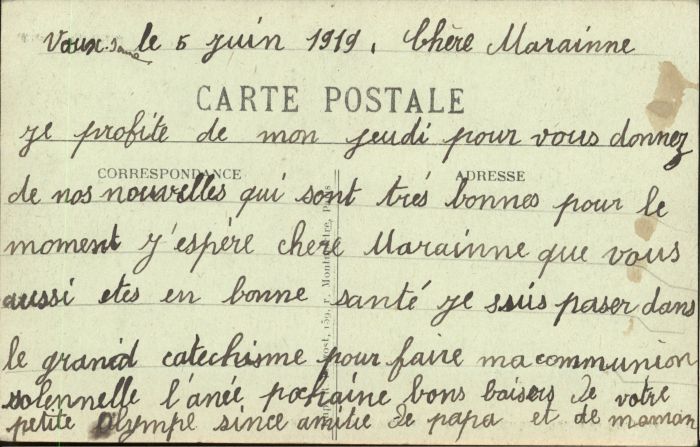 Vaux. le 5 juin 1919. Chère Marainne
CARTE POSTALE
je profite de mon jeudi pour vous donnez
CORRESPONDANCE
ADRESSE
de nos nouvelles qui sont très bonnes pour le
moment j'espère chere Marainne que vous
aussi etes en bonne santé je suis paser dans
le grand catechisme pour faire ma communion
solennelle l'anée pochaine bons baisers de votre
petite Olympe since amitie de papa et de maman